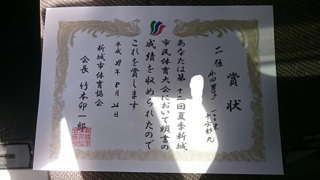 賞状
二位
あなたは第十二回夏季新城
市民体育大会において頭書の
成績を収められたので
これを賞します
平成29年8月26日
新城市体育協会
会長 竹本卯一郎